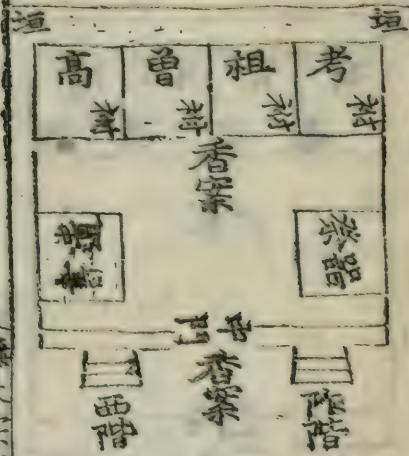 垣 垣
高 曾 祖 考
祔 祔 祔 祔
香案
書 祭器
中門
香案
西階 阼階